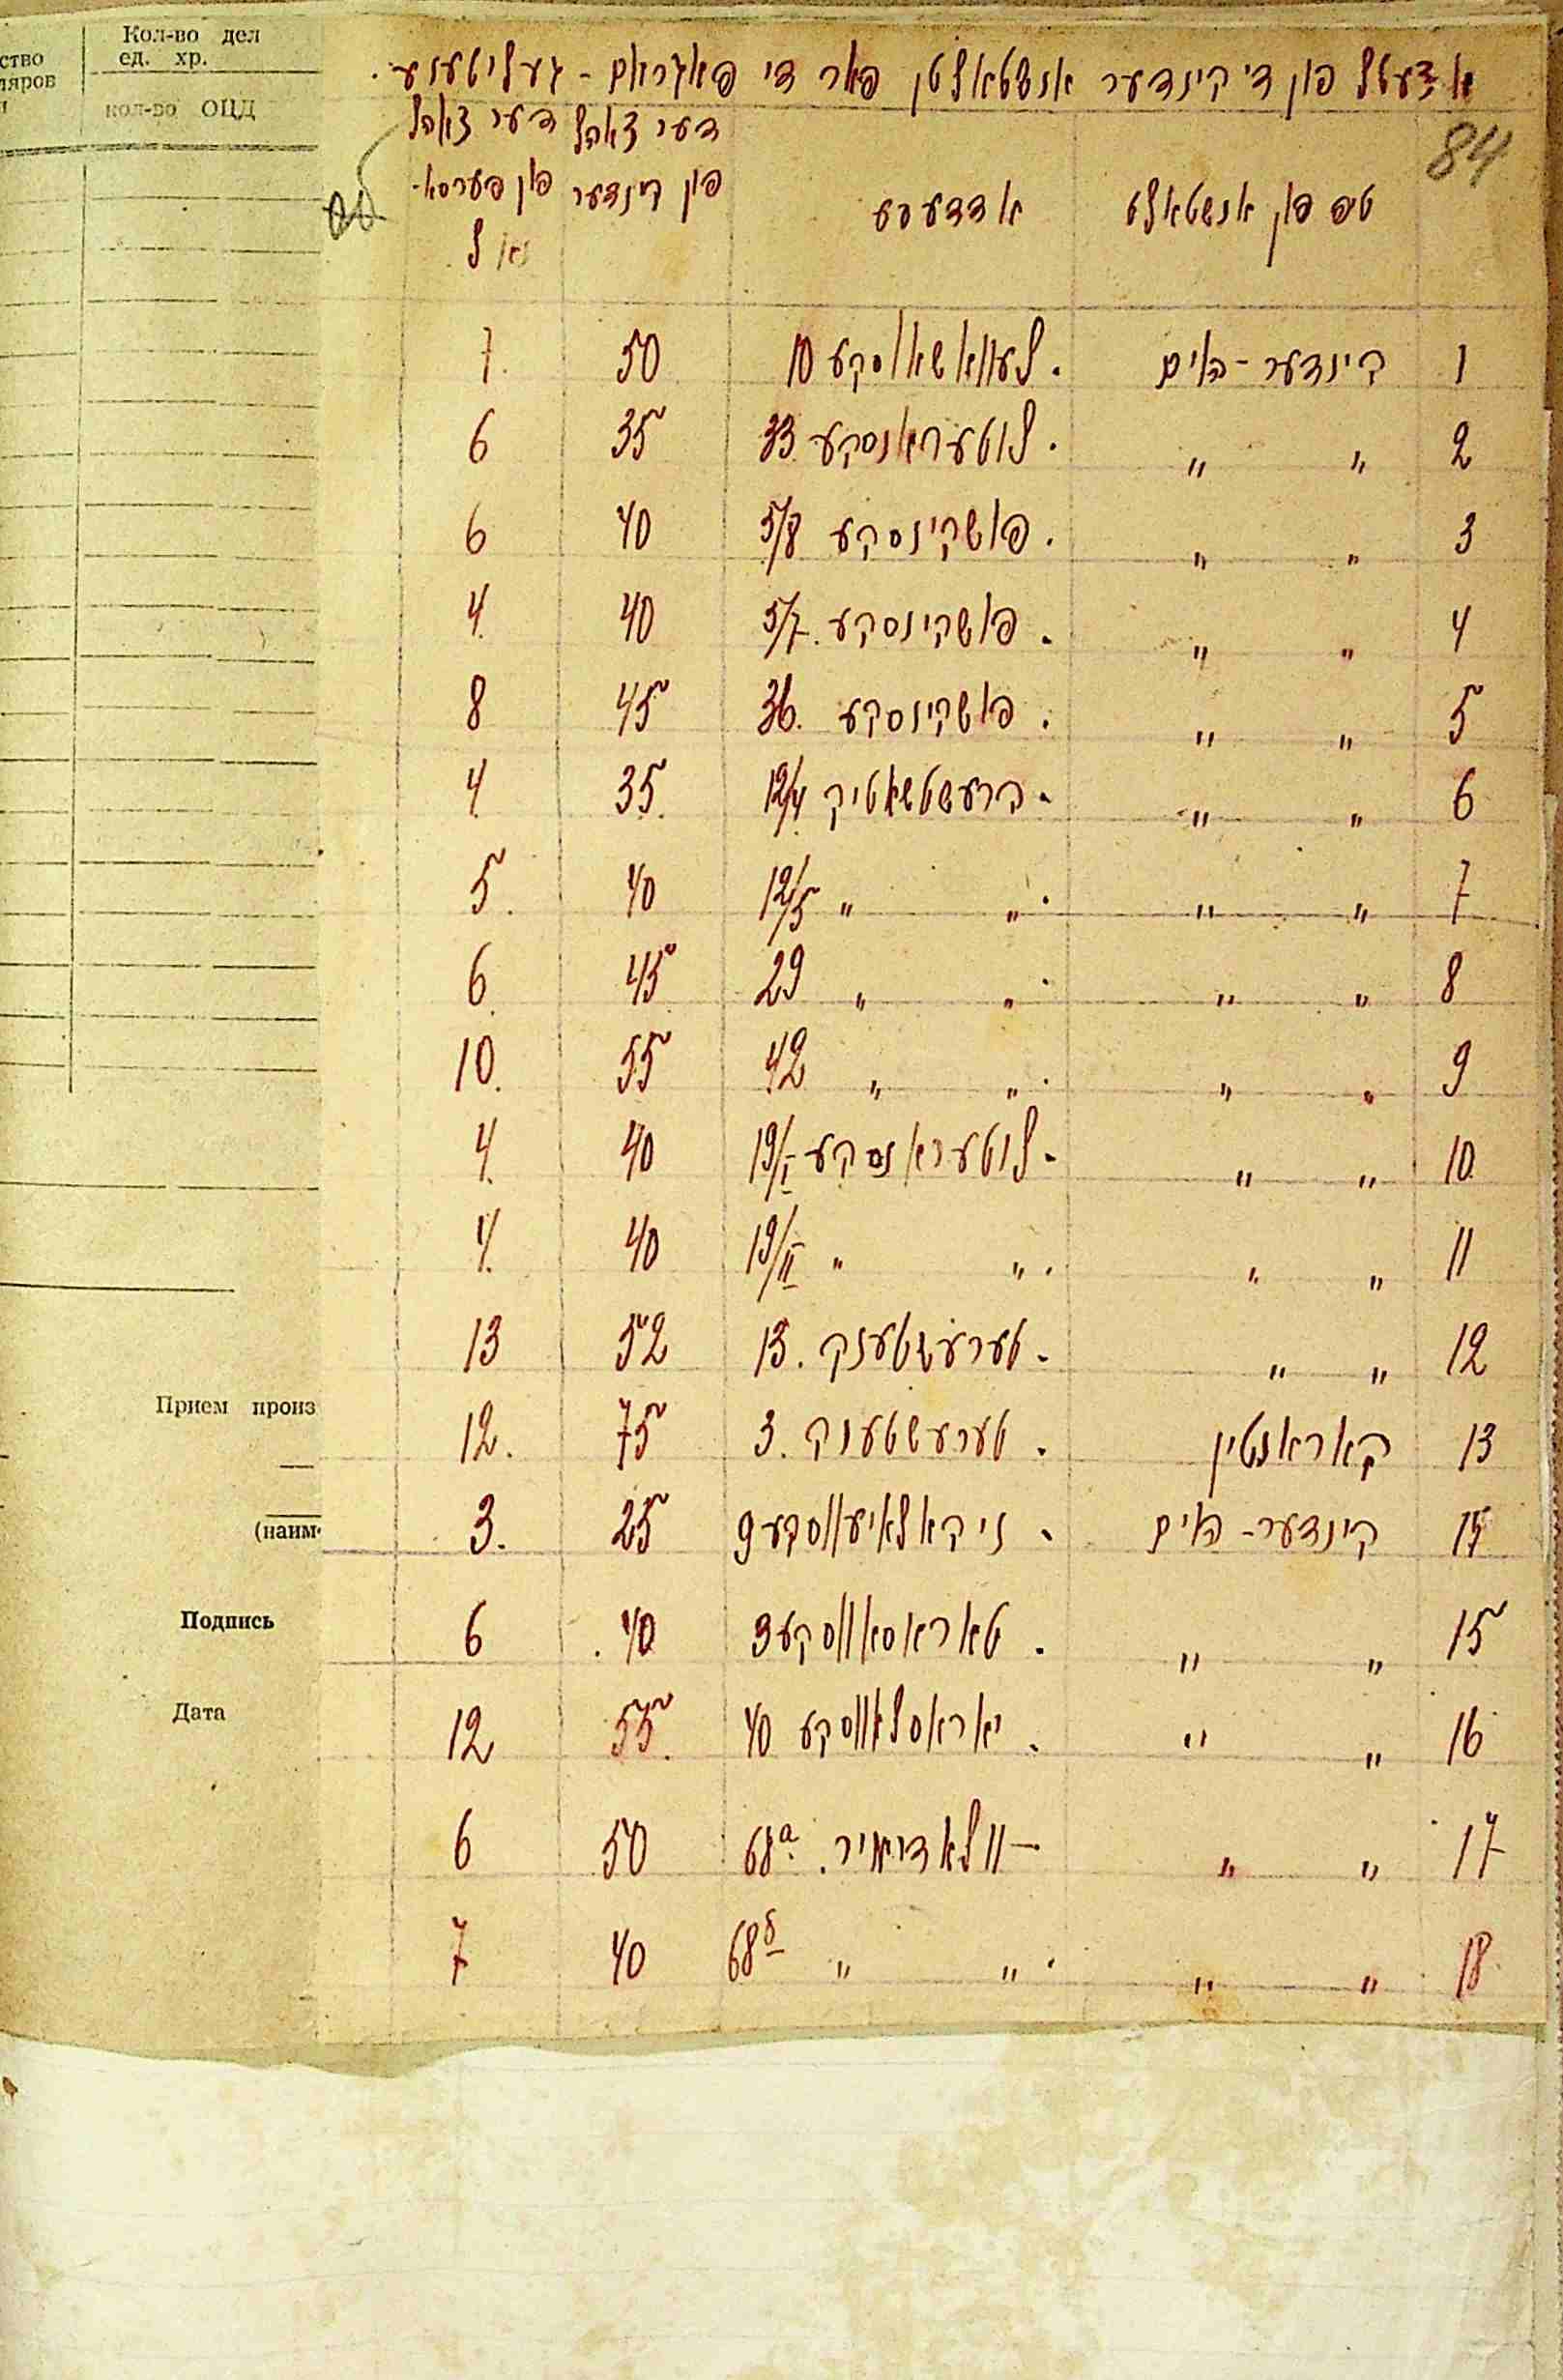 א צעטל פון די קינדער אנשטאלטן פאר די פאגראם - געליטענע.
84
טיפ פון אנשטאלט | אדרעסע | דער צאהל פון קינדער | דער צאהל פון פערסאנאל
1 | קינדער-היים | לעוואשאווסקע 10 | 50 | 7.
2 | " " | לוטעראנסקע 33 | 35 | 6
3 | " " | פושקינסקע 5/8 | 40 | 6
4 | " " | פושקינסקע 5/7. | 40 | 4.
5 | " " | פושקינסקע 36. | 45 | 8
6 | " " | קרעשטשאטיק 12/4 | 35. | 4.
7 | " " | " " 12/5 | 40 | 5.
8 | " " | " " 29 | 45 | 6.
9 | " " | " " 42 | 55 | 10.
10. | " " | לוטעראנסקע 19/I | 40 | 4.
11 | " " | " " 19/II | 40 | 4.
12 | " " | טערעשטענק. 13 | 52 | 13
13 | קאראנטין | טערעשטענק. 3 | 75 | 12.
14 | קינדער-היים | ניקאלאיעווסקע 9 | 25 | 3.
15 | " " | טאראסאווסקע 3 | 40 | 6
16 | " " | יאראסלאווסקע 40 | 55. | 12
17 | " " | וולאדימיר. 68а | 50 | 6
18 | " " | " " 68б | 40 | 7
ство
ляров
Кол-во дел
ед. хр.
кол-во ОЦД
Прием произ
(наим
Подпись
Дата